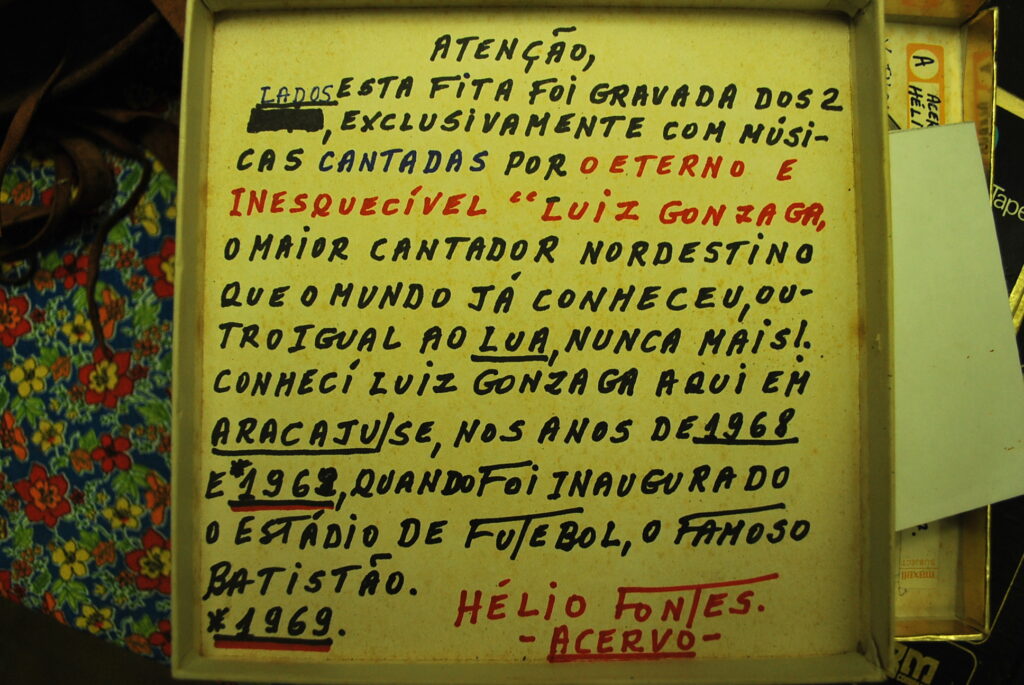 ATENÇÃO,
LADOS ESTA FITA FOI GRAVADA DOS 2
, EXCLUSIVAMENTE COM MÚSI-
CAS CANTADAS POR O ETERNO E
INESQUECÍVEL “LUIZ GONZAGA,
O MAIOR CANTADOR NORDESTINO
QUE O MUNDO JÁ CONHECEU, OU-
TRO IGUAL AO LUA, NUNCA MAIS!.
CONHECÍ LUIZ GONZAGA AQUI EM
ARACAJU/SE, NOS ANOS DE 1968
E *1969, QUANDO FOI INAUGURADO
O ESTÁDIO DE FUTEBOL, O FAMOSO
BATISTÃO.
*1969.
HÉLIO FONTES.
-ACERVO-
A
Tape